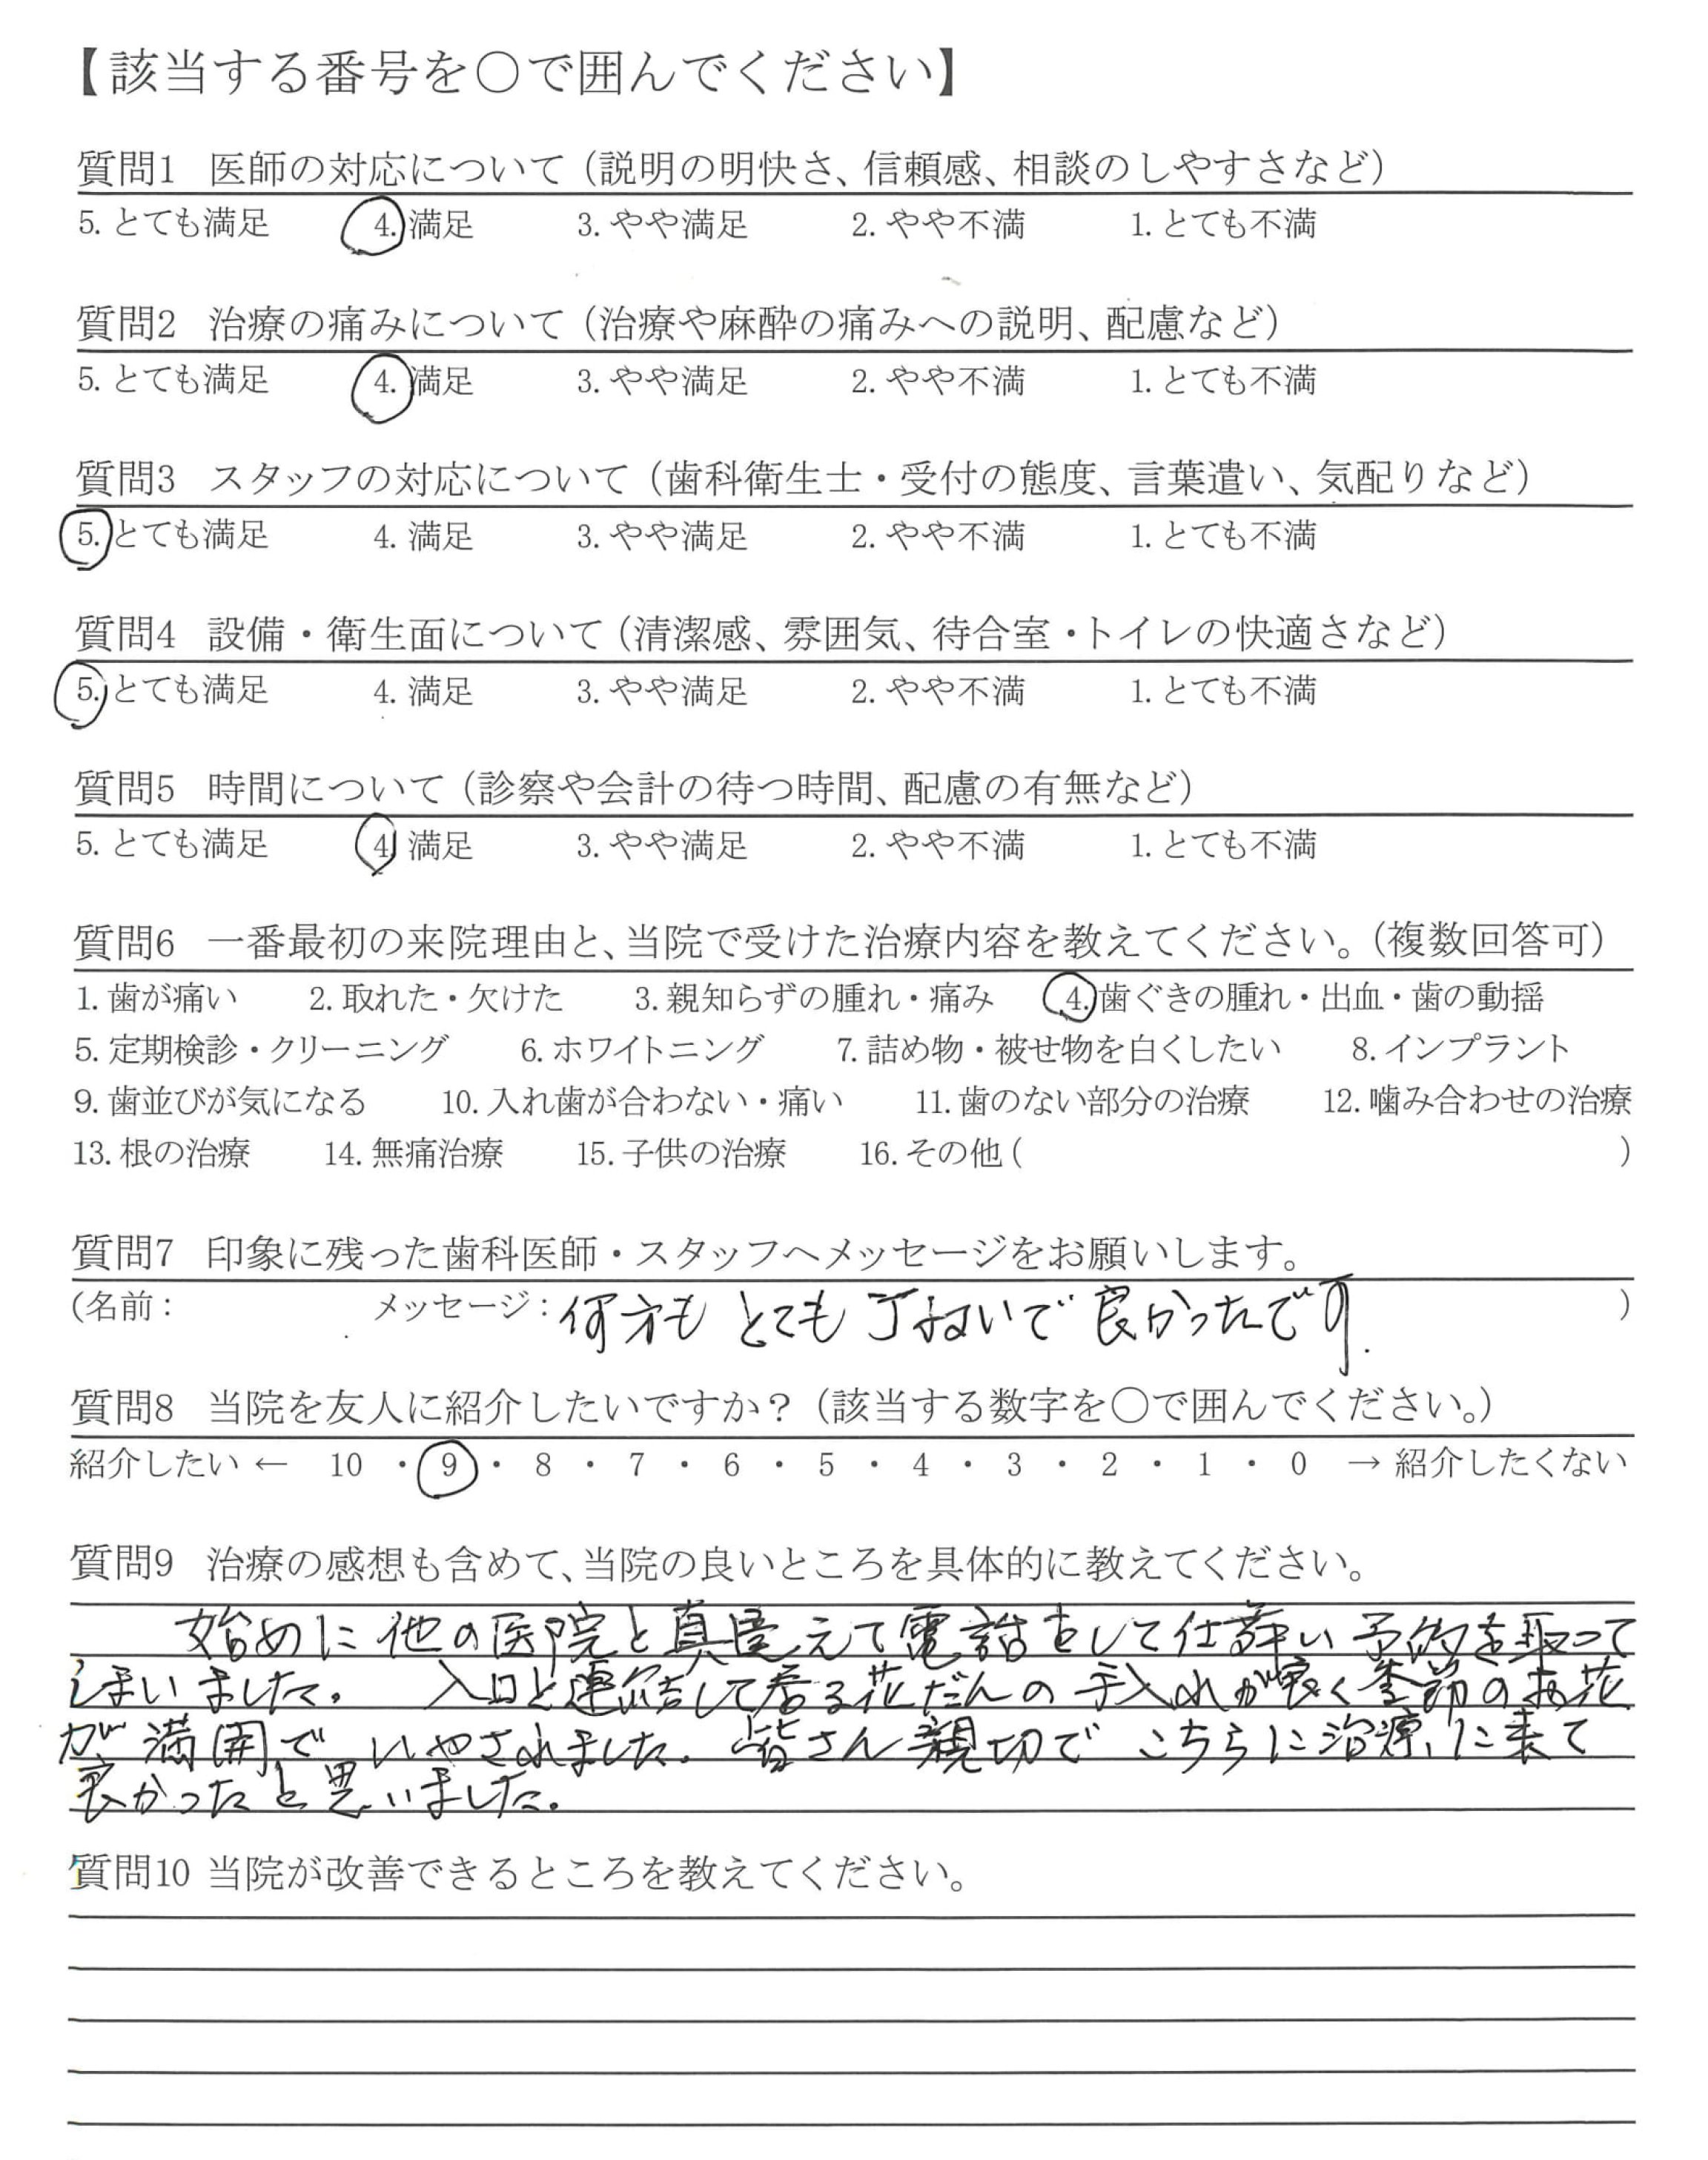 【該当する番号を〇で囲んでください】
質問1 医師の対応について（説明の明快さ、信頼感、相談のしやすさなど）
5. とても満足 4. 満足 3. やや満足 2. やや不満 1. とても不満
質問2 治療の痛みについて（治療や麻酔の痛みへの説明、配慮など）
5. とても満足 4. 満足 3. やや満足 2. やや不満 1. とても不満
質問3 スタッフの対応について（歯科衛生士・受付の態度、言葉遣い、気配りなど）
5. とても満足 4. 満足 3. やや満足 2. やや不満 1. とても不満
質問4 設備・衛生面について（清潔感、雰囲気、待合室・トイレの快適さなど）
5. とても満足 4. 満足 3. やや満足 2. やや不満 1. とても不満
質問5 時間について（診察や会計の待つ時間、配慮の有無など）
5. とても満足 4. 満足 3. やや満足 2. やや不満 1. とても不満
質問6 一番最初の来院理由と、当院で受けた治療内容を教えてください。（複数回答可）
1. 歯が痛い 2. 取れた・欠けた 3. 親知らずの腫れ・痛み 4. 歯ぐきの腫れ・出血・歯の動揺
5. 定期検診・クリーニング 6. ホワイトニング 7. 詰め物・被せ物を白くしたい 8. インプラント
9. 歯並びが気になる 10. 入れ歯が合わない・痛い 11. 歯のない部分の治療 12. 噛み合わせの治療
13. 根の治療 14. 無痛治療 15. 子供の治療 16. その他 ( )
質問7 印象に残った歯科医師・スタッフへメッセージをお願いします。
(名前： メッセージ：何方も とても 丁ねいで 良かったです. )
質問8 当院を友人に紹介したいですか？（該当する数字を〇で囲んでください。）
紹介したい ← 10 ・ 9 ・ 8 ・ 7 ・ 6 ・ 5 ・ 4 ・ 3 ・ 2 ・ 1 ・ 0 → 紹介したくない
質問9 治療の感想も含めて、当院の良いところを具体的に教えてください。
始めに 他の医院と えて電話をして仕舞い 予約を取って
しまいました。 入口と連結して居る花だんの 手入れが良く季節のお花
が 満開で いやされました. 皆さん 親切で こちらに治療に来て
良かったと思いました.
質問10 当院が改善できるところを教えてください。